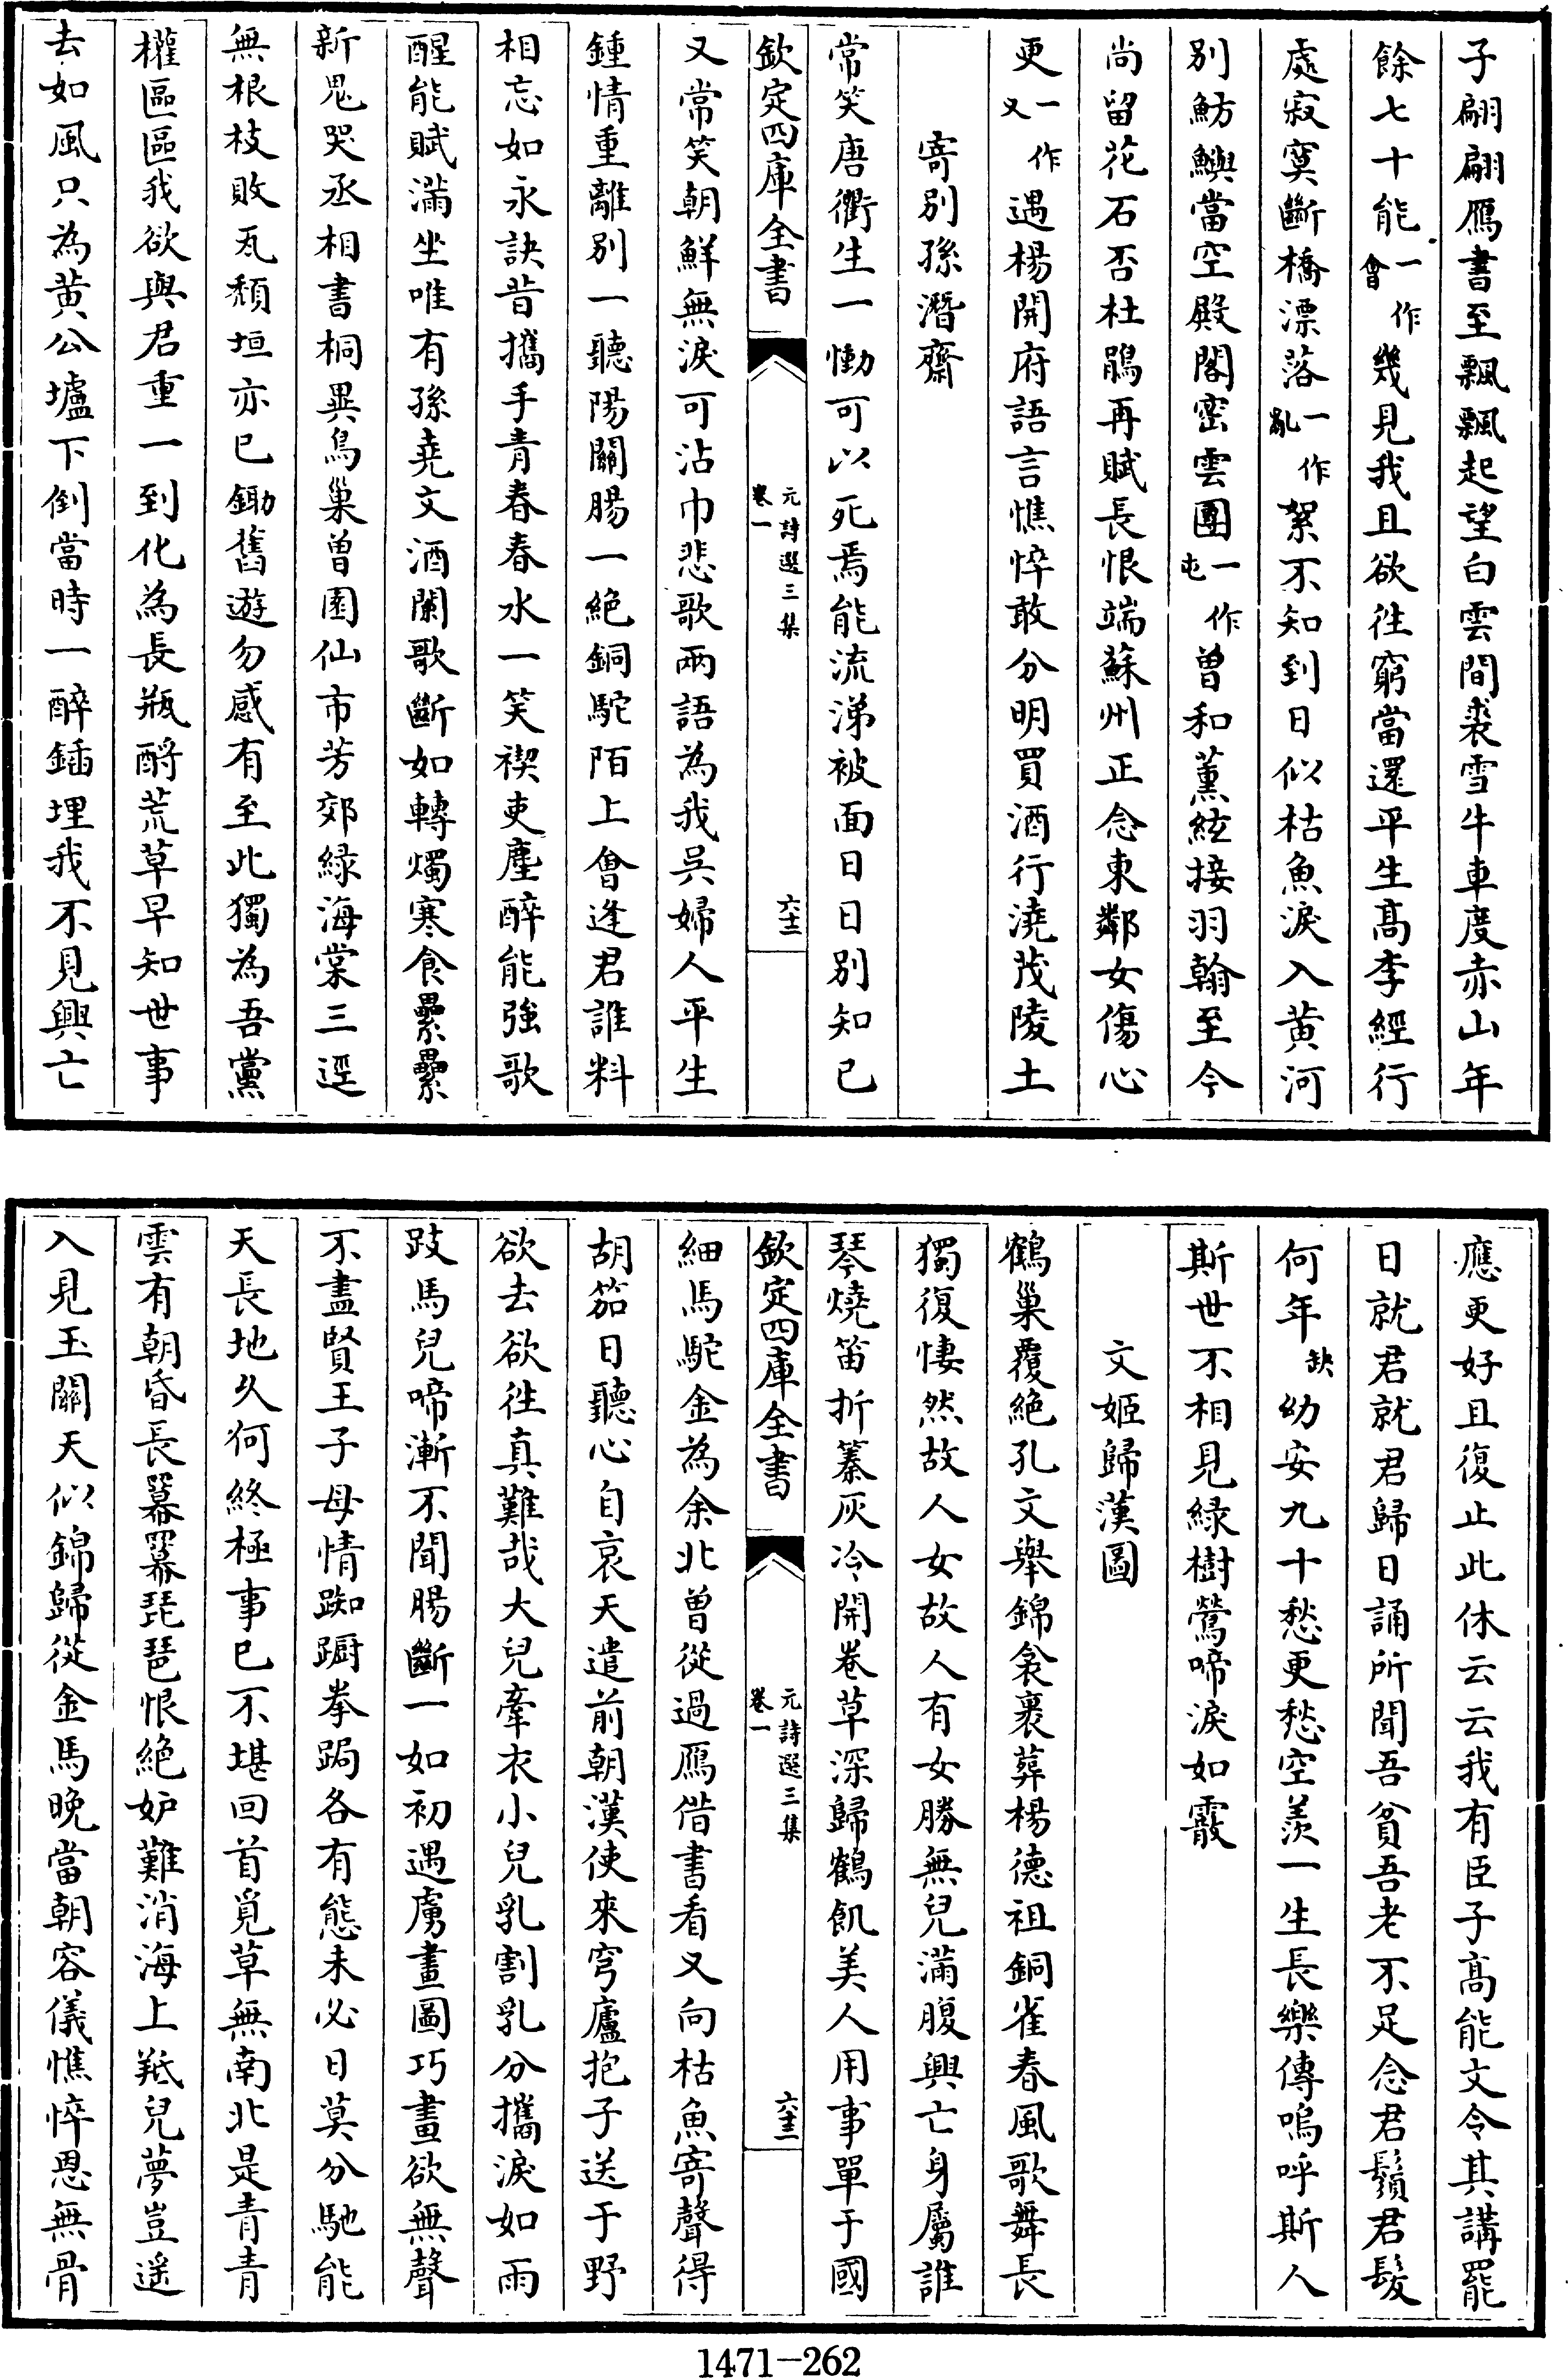 子翩翩雁書至飄飄起望白雲間裘雪牛車度赤山年
餘七十能一作會幾見我且欲往窮當還平生髙李經行
處寂寞斷橋漂落一作亂絮不知到日似枯魚淚入黄河
別魴鱮當空殿閣密雲團一作屯曽和薰絃接羽翰至今
尚留花石否杜鵑再賦長恨端蘇州正念東鄰女傷心
更一作又遇楊開府語言憔悴敢分明買酒行澆茂陵土
寄別孫潛齋
常笑唐衢生一慟可以死焉能流涕被面日日別知已
欽定四庫全書
元詩選三集
卷一
六十二
又常笑朝鮮無淚可沾巾悲歌兩語為我呉婦人平生
鍾情重離別一聽陽關腸一絶銅駝陌上會逢君誰料
相忘如永訣昔攜手青春春水一笑禊吏塵醉能強歌
醒能賦滿坐唯有孫堯文酒闌歌斷如轉燭寒食纍纍
新鬼哭丞相書桐異鳥巢曽園仙市芳郊緑海棠三逕
無根枝敗瓦頽垣亦已鋤舊遊勿感有至此獨為吾黨
權區區我欲與君重一到化為長瓶酹荒草早知世事
去如風只為黄公壚下倒當時一醉鍤埋我不見興亡
應更好且復止此休云云我有臣子髙能文令其講罷
日就君就君歸日誦所聞吾貧吾老不足念君鬚君髮
何年缺幼安九十愁更愁空羨一生長樂傳嗚呼斯人
斯世不相見緑樹鶯啼淚如霰
文姬歸漢圖
鶴巢覆絶孔文舉錦衾裹葬楊德祖銅雀春風歌舞長
獨復悽然故人女故人有女勝無兒滿腹興亡身屬誰
琴燒笛折纂灰冷開卷草深歸鶴飢美人用事單于國
欽定四庫全書
元詩選三集
卷一
六十三
細馬駝金為余北曽從過雁借書看又向枯魚寄聲得
胡笳日聽心自哀天遣前朝漢使來穹廬抱子送于野
欲去欲往真難哉大兒牽衣小兒乳割乳分攜淚如雨
跂馬兒啼漸不聞腸斷一如初遇虜畫圖巧畫欲無聲
不盡賢王子母情踟躕拳跼各有態未必日莫分馳能
天長地久何終極事已不堪回首覓草無南北是青青
雲有朝昏長羃羃琵琶恨絶妒難消海上羝兒夢豈遥
入見玉關天似錦歸從金馬晚當朝容儀憔悴恩無骨
1471—262